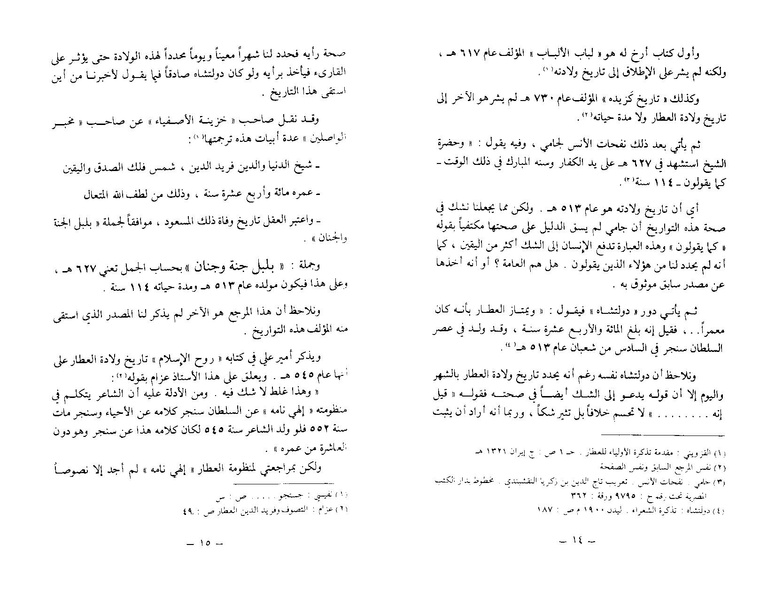 وأول كتاب أرخ له هو « لباب الألباب » المؤلف عام ٦١٧ هـ ،
ولكنه لم يشر على الإطلاق إلى تاريخ ولادته(١) .
وكذلك « تاريخ كزيده » المؤلف عام ٧٣٠ هـ لم يشر هو الآخر إلى
تاريخ ولادة العطار ولا مدة حياته(٢) .
ثم يأتي بعد ذلك نفحات الأنس لجامي ، وفيه يقول : « وحضرة
الشيخ استشهد في ٦٢٧ هـ على يد الكفار وسنه المبارك في ذلك الوقت –
كما يقولون – ١١٤ سنة(٣) .
أي أن تاريخ ولادته هو عام ٥١٣ هـ . ولكن مما يجعلنا نشك في
صحة هذه التواريخ أن جامي لم يسق الدليل على صحتها مكتفياً بقوله
« كما يقولون » وهذه العبارة تدفع الإنسان إلى الشك أكثر من اليقين ، كما
أنه لم يحدد لنا من هؤلاء الذين يقولون . هل هم العامة ؟ أو أنه أخذها
عن مصدر سابق موثوق به .
ثم يأتي دور « دولتشاه » فيقول : « ويمتاز العطار بأنه كان
معمراً . . ، فقيل إنه بلغ المائة والأربع عشرة سنة ، وقد ولد في عصر
السلطان سنجر في السادس من شعبان عام ٥١٣ هـ »(٤) .
ونلاحظ أن دولتشاه نفسه رغم أنه يحدد تاريخ ولادة العطار بالشهر
واليوم إلا أن قوله يدعو إلى الشك أيضاً في صحته فقوله « قيل
إنه . . . . . . . . » لا تحسم خلافاً بل تثير شكاً ، وربما أنه أراد أن يثبت
(١) القزويني : مقدمة تذكرة الأولياء للعطار . جـ ١ ص : ج إيران ١٣٢١ هـ
(٢) نفس المرجع السابق ونفس الصفحة
(٣) جامي . نفحات الأنس . تعريب تاج الدين بن زكريا النقشبندي . مخطوط بدار الكتب
المصرية تحت رقم ح : ٩٧٩٥ ورقة : ٣٦٢
(٤) دولتشاه : تذكرة الشعراء . ليدن ١٩٠٠ م ص : ١٨٧
– ١٤ –
صحة رأيه فحدد لنا شهراً معيناً ويوماً محدداً لهذه الولادة حتى يؤثر على
القارىء فيأخذ برأيه ولو كان دولتشاه صادقاً فيما يقول لأخبرنا من أين
استقى هذا التاريخ .
وقد نقل صاحب « خزينة الأصفياء » عن صاحب « مخبر
الواصلين » عدة أبيات هذه ترجمتها(١) :
– شيخ الدنيا والدين فريد الدين ، شمس فلك الصدق واليقين
– عمره مائة وأربع عشرة سنة ، وذلك من لطف الله المتعال
– واعتبر العقل تاريخ وفاة ذلك المسعود ، موافقاً لجملة « بلبل الجنة
والجنان » .
وجملة : « بلبل جنة وجنان » بحساب الجمل تعني ٦٢٧ هـ ،
وعلى هذا فيكون مولده عام ٥١٣ هـ ومدة حياته ١١٤ سنة .
ونلاحظ أن هذا المرجع هو الآخر لم يذكر لنا المصدر الذي استقى
منه المؤلف هذه التواريخ .
ويذكر أمير علي في كتابه « روح الإسلام » تاريخ ولادة العطار على
أنها عام ٥٤٥ هـ . ويعلق على هذا الأستاذ عزام بقوله(٢) :
« وهذا غلط لا شك فيه . ومن الأدلة عليه أن الشاعر يتكلم في
منظومته « إلهي نامه » عن السلطان سنجر كلامه عن الأحياء وسنجر مات
سنة ٥٥٢ فلو ولد الشاعر سنة ٥٤٥ لكان كلامه هذا عن سنجر وهو دون
العاشرة من عمره » .
ولكن بمراجعتي لمنظومة العطار « إلهي نامه » لم أجد إلا نصوصاً
(١) نفيسي : جستجو . . . . . ص : س
(٢) عزام : التصوف وفريد الدين العطار ص : ٤٩
– ١٥ –